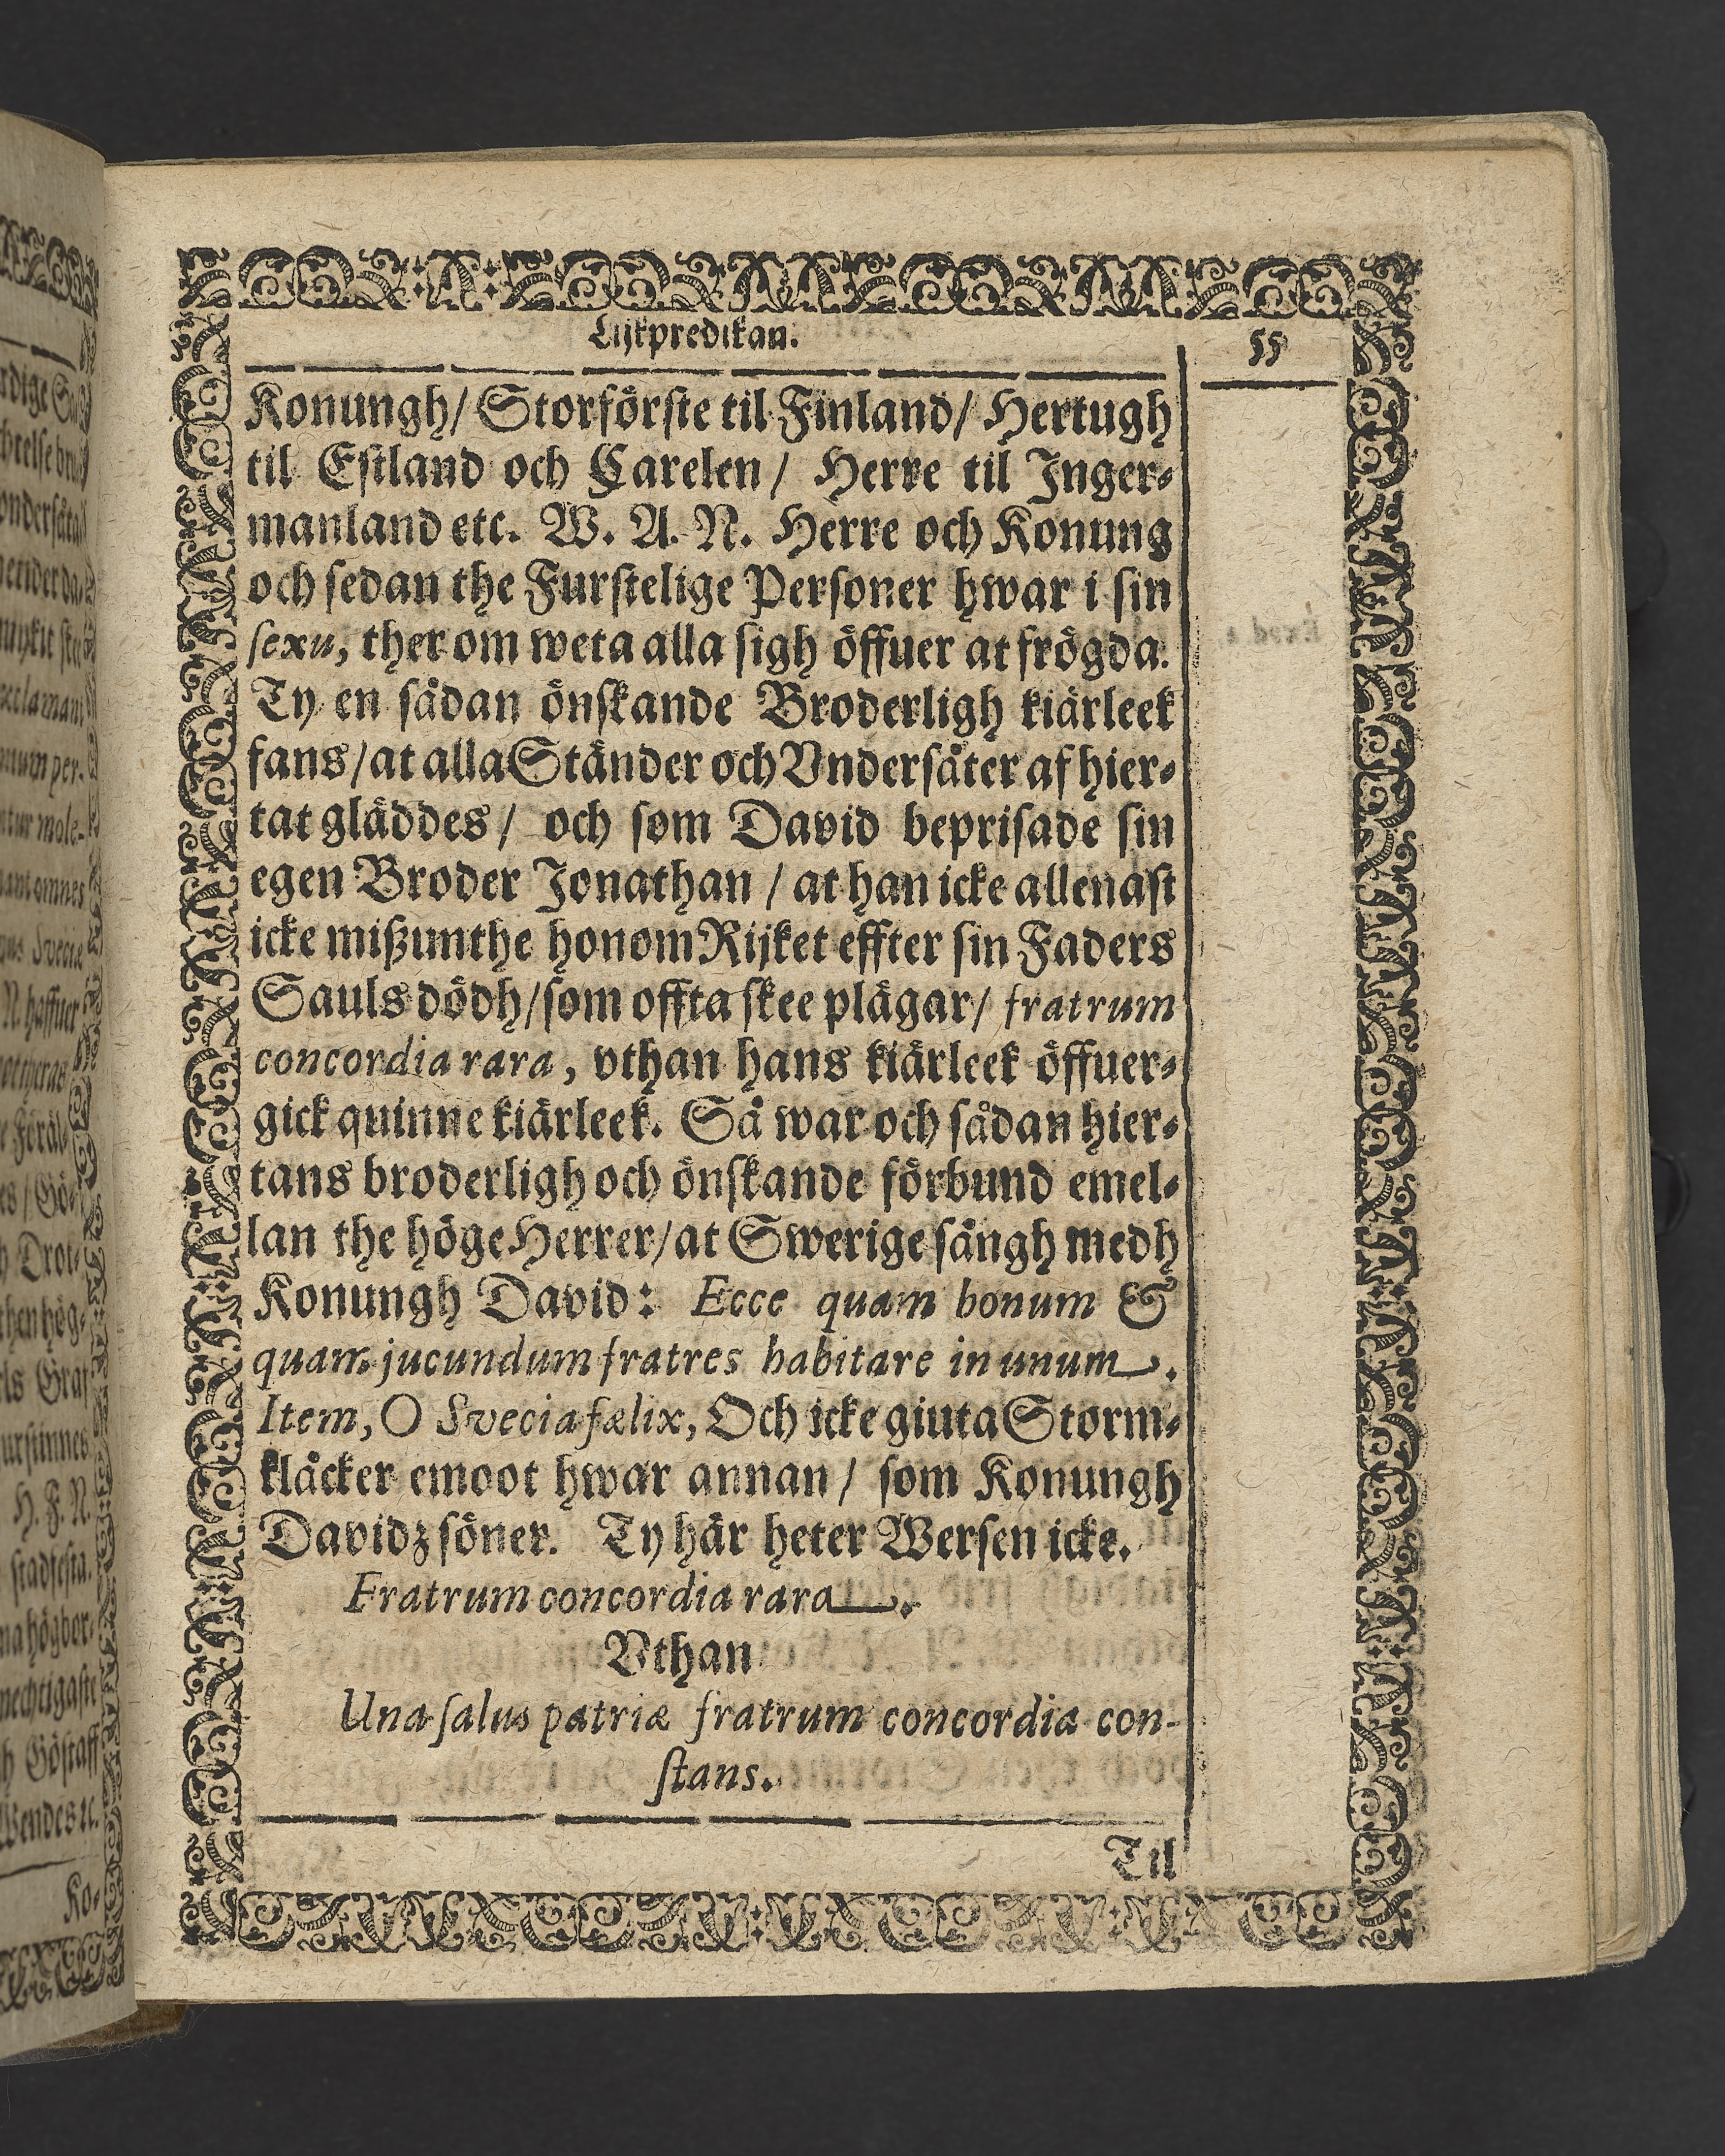 Lijkpredikan.
55
Konungh/ Storförste til Finland/ Hertugh
til Estland och Carelen/ Herre til Inger-
manland etc. W. A. N. Herre och Konung
och sedan the Furstelige Personer hwar i sin
sexu, ther om weta alla sigh öffuer at frögda.
Ty en sådan önskande Broderligh kiärleek
fans/ at alla Ständer och Vndersåter af hier-
tat gläddes/ och som David beprisade sin
egen Broder Jonathan / at han icke allenast
icke mißunthe honom Rijket effter sin Faders
Sauls dödh/ som offta skee plägar/ fratrum
concordia rara, vthan hans kiärleek öffuer-
gick quinne kiärleek. Så war och sådan hier-
tans broderligh och önskande förbund emel-
lan the höge Herrer/ at Swerige sängh medh
Konungh David: Ecce quam bonum &
quam jucundum fratres habitare in unum.
Item, O Svecia fælix, Och icke giuta Storm-
klåcker emoot hwar annan / som Konungh
Davidz söner. Ty här heter Wersen icke.
Fratrum concordia rara.
Vthan
Una salus patriæ fratrum concordia con-
stans.
Til